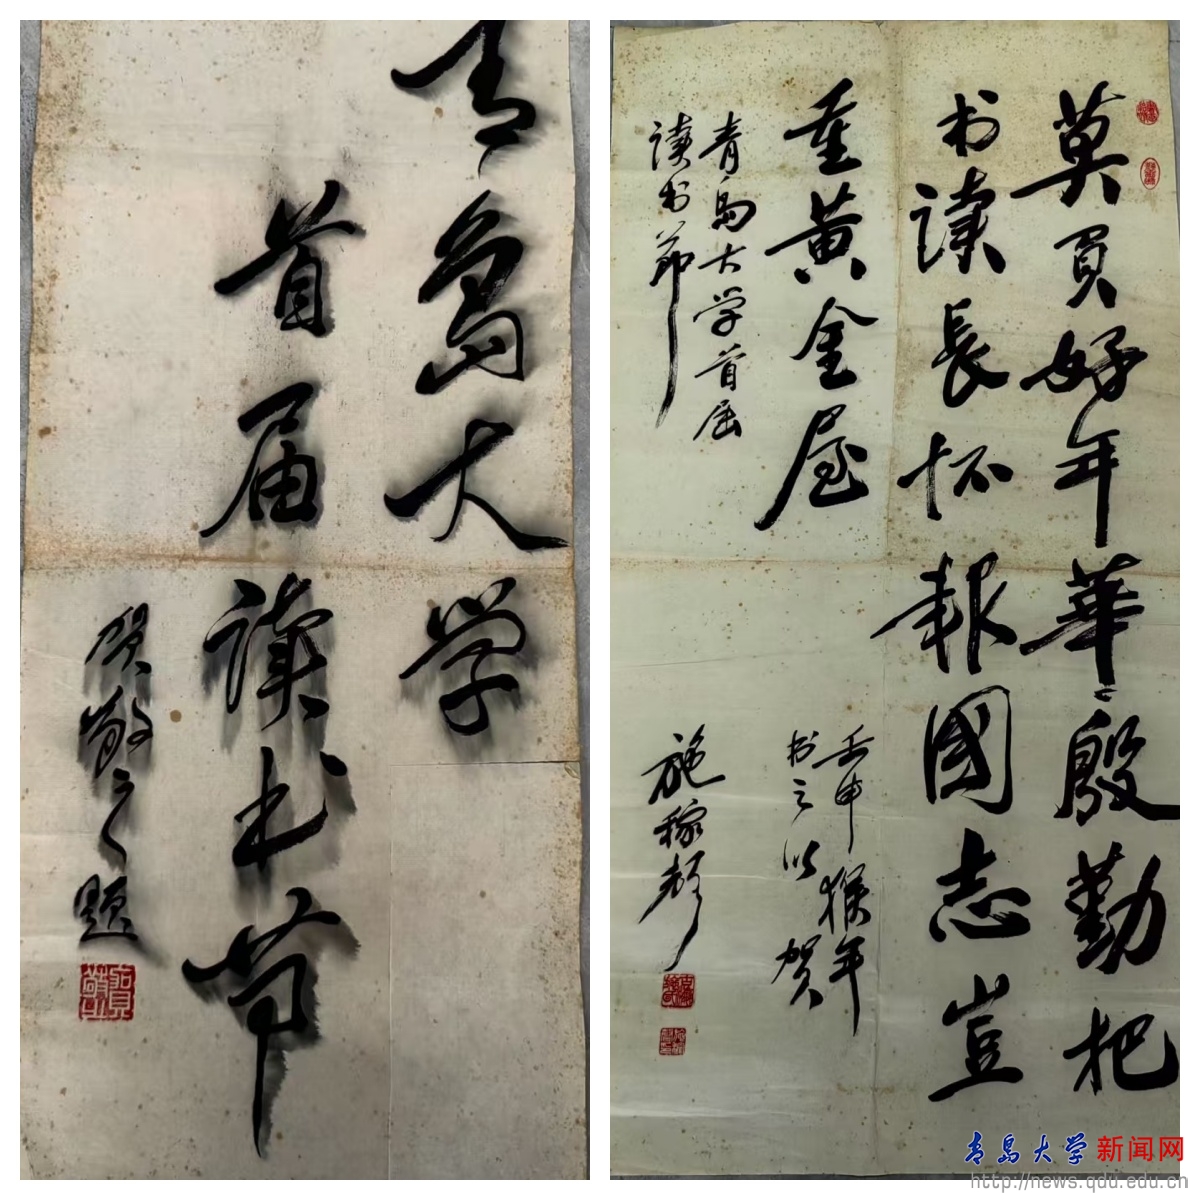 青岛大学
首届读书节
贺敬之题
莫负好年華殷勤把
书读長怀報國志豈
重黄金屋
青岛大学首届
读书节
壬申猴年
书之以贺
施稼
青岛大学新闻网
http://news.qdu.edu.cn